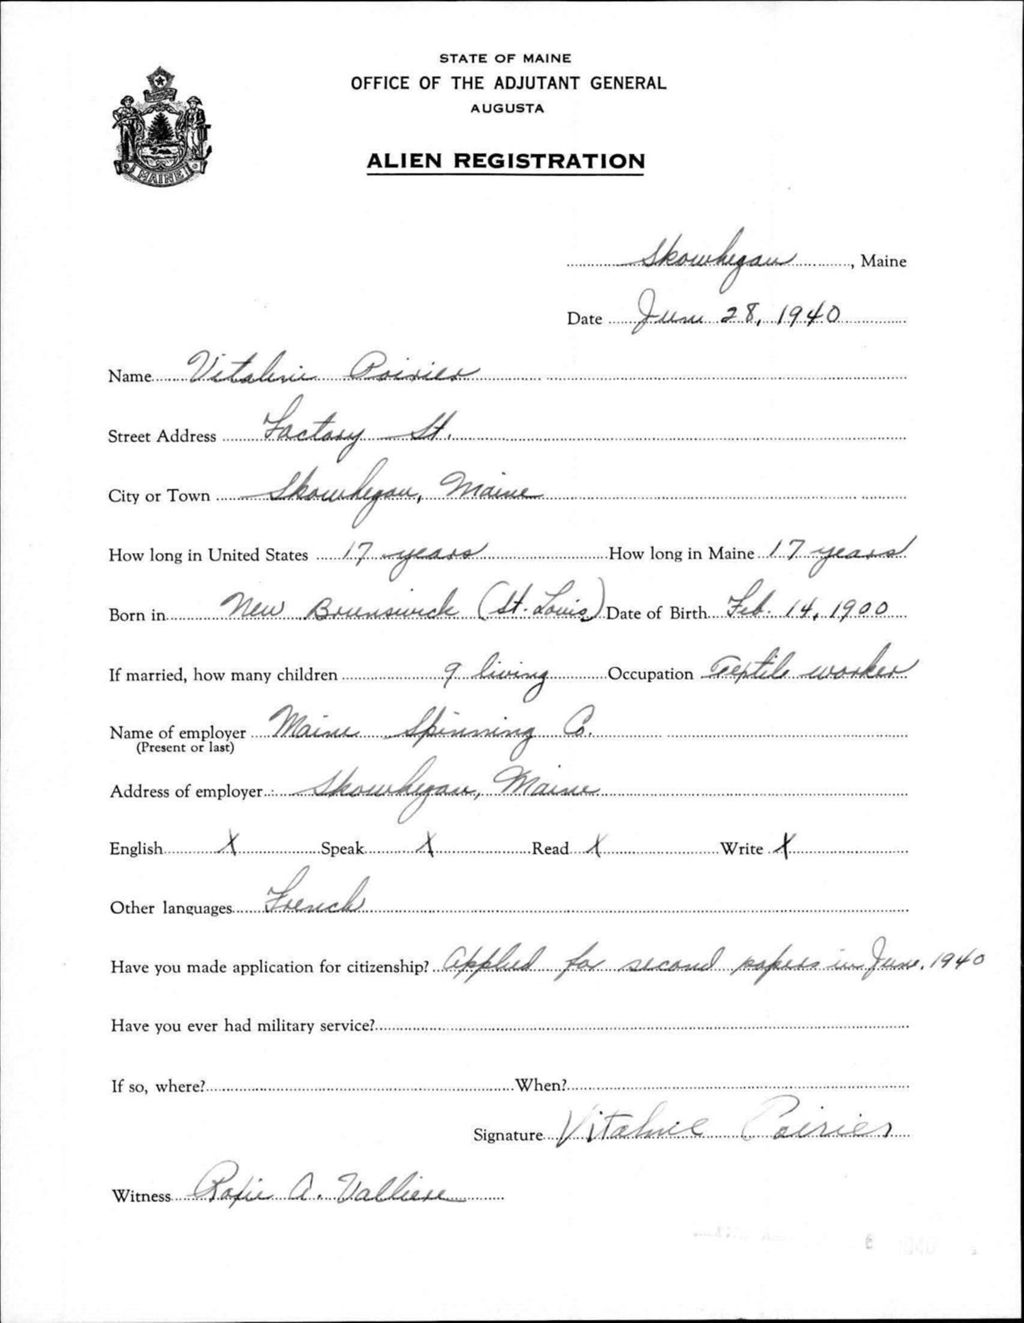 STATE OF MAINE
OFFICE OF THE ADJUTANT GENERAL
AUGUSTA
MAINE
ALIEN REGISTRATION
Skowhegan, Maine
Date June 28, 1940
Name Vitalinie Poirier
Street Address Factory St.
City or Town Skowhegan, Maine
How long in United States 17 years How long in Maine 17 years
Born in New Brunswick (St. Louis) Date of Birth Feb. 14, 1900
If married, how many children 9 living Occupation Textile worker
Name of employer Maine Spinning Co.
(Present or last)
Address of employer Skowhegan, Maine
English X Speak X Read X Write X
Other languages French
Have you made application for citizenship? Applied for second papers in June, 1940
Have you ever had military service?
If so, where? When?
Signature Poirier
Witness A. Valliere